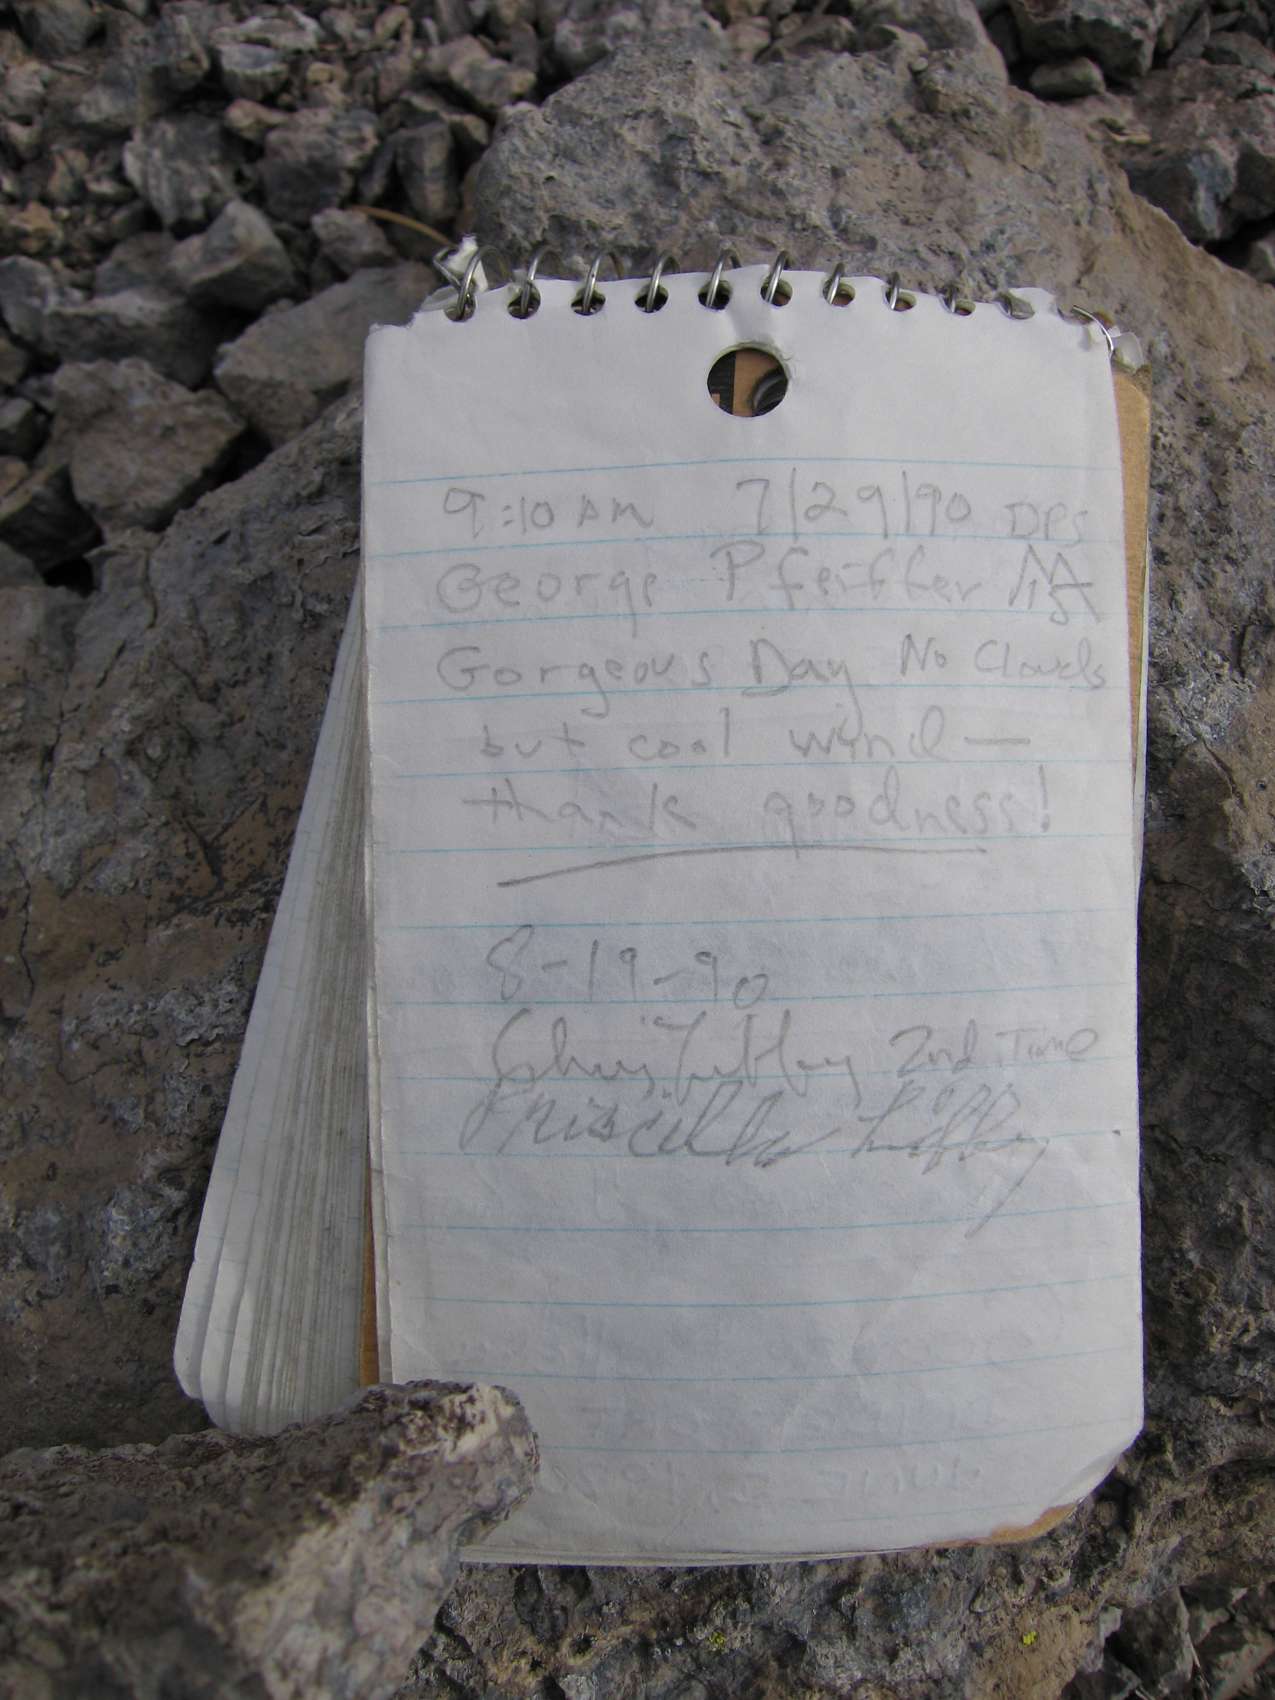 9:10 AM 7/29/90 DPS
George Pfeiffer
Gorgeous Day No Clouds
but cool wind —
thank goodness!
8-19-90
Chris 2nd Time
Priscilla